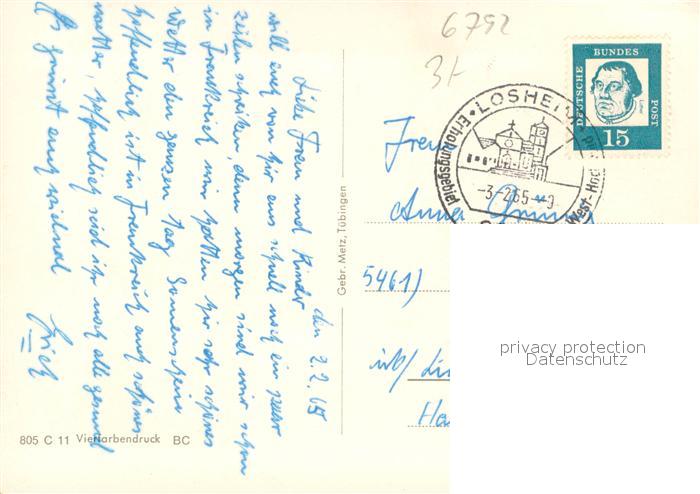 den 2.2.65
Liebe Frau und Kinder
will euch von hier aus schnell noch ein paar
Zeilen schreiben, denn morgen sind wir schon
in Frankreich wir hatten hier sehr schönes
Wetter den ganzen Tag Sonnenschein
hoffentlich ist in Frankreich auch schönes
wetter, hoffentlich seid ihr noch alle gesund
Es grüsst euch
Erich
805 C 11 Vierfarbendruck BC
Gebr. Metz, Tübingen
6792
DEUTSCHE BUNDES POST
15
LOSHEIM
Erholungsgebiet
West-Hoch
-3.-2.65-
Frau
Anna
5461)
privacy protection
Datenschutz